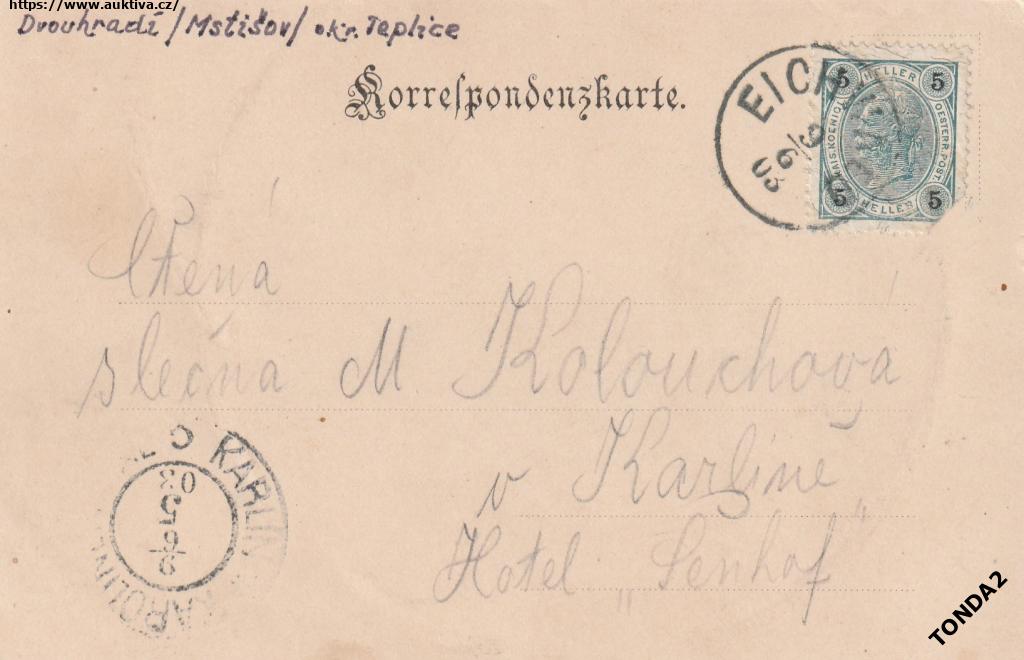 https://www.auktiva.cz/
Dvouhradí /Mstišov/ okr. Teplice
Korrespondenzkarte.
EICH
6/9
03
5 HELLER 5
KAIS. KOENIGL. OESTERR. POST
5 HELLER 5
Ctěná
slečna M Kolouchová
v Karlíně
Hotel „Senhof“
KARLIN
KAROLIN
03
TONDA2